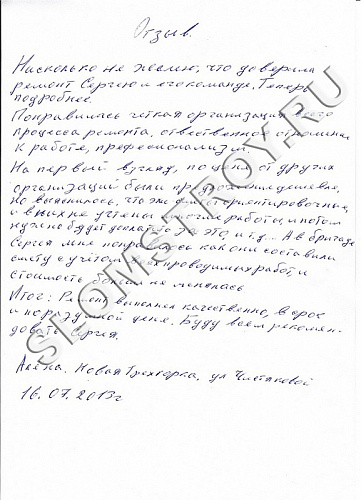 Отзыв.
Нисколько не жалею, что доверила
ремонт Сергею и его команде. Теперь
подробнее.
Понравилась четкая организация всего
процесса ремонта, ответственное отношение
к работе, профессионализм.
На первый взгляд, по цене от других
организаций были предложения дешевле,
но выяснилось, что это ориентировочная,
и в них не учтены многие работы, и потом
нужно будет доплатить за это и т.д... А в бригаде
Сергея мне понравилось как они составили
смету с учетом всех проводимых работ и
стоимость больше не менялась
Итог: Ремонт выполнен качественно, в срок
и по разумной цене. Буду всем рекомен-
довать Сергея.
Алёна. Новая Трехгорка, ул Чистяковой
16.07.2013г
SLOMSTROY.RU